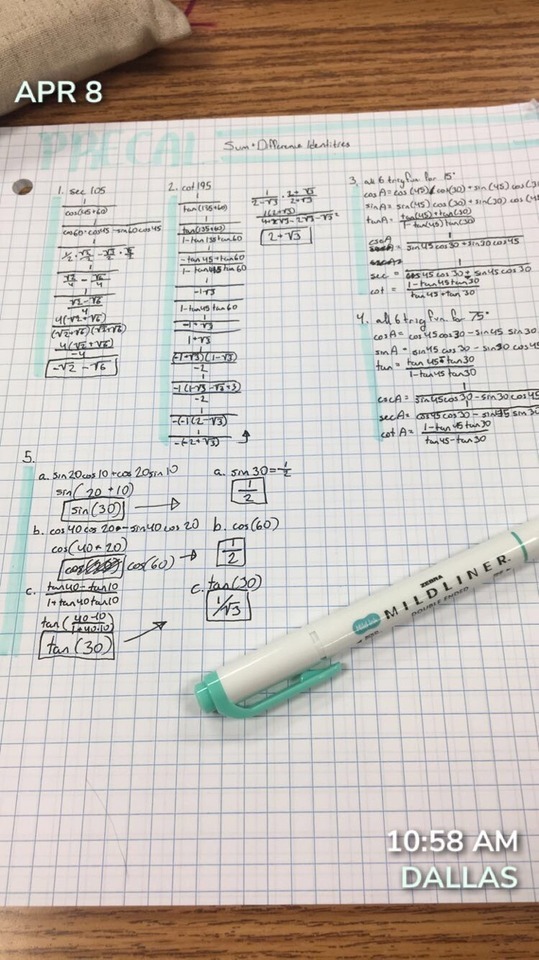 APR 8
PRECAL
Sum + Difference Identities
1. sec 105
1
cos(45+60)
1
cos60·cos45 - sin60 cos45
1
1/2 · √2/2 - √3/2 · √2/2
1
√2/4 - √6/4
1
√2 - √6
4
4(√2+√6)
(√2-√6)(√2+√6)
4(√2+√6)
-4
-√2 - √6
2. cot 195
1
tan(135+60)
1
tan(135+60)
1
1 - tan 135 tan 60
1
- tan 45 + tan 60
1 - tan 45 tan 60
1
-1 √3
1 - tan 45 tan 60
1
-1 + √3
1 + √3
1
(-1+√3)(1-√3)
-2
1
-1(1-√3-√3+3)
-2
1
-(-1(2-√3)
1
-(-2+√3)
1/2-√3 · 2+√3/2+√3
1(2+√3)
4+2√3-2√3-√3²
2+√3
3. all 6 trig fxn for 15°
cosA = cos(45) cos(30) + sin(45) cos(3
sinA = sin(45) cos(30) + sin(30) cos(4
tanA = tan(45)+tan(30)
1 - tan(45)tan(30)
cscA
1
sin45 cos30 + sin30 cos45
1
sec = cos45 cos30 + sin45 cos30
cot = 1 - tan45 tan30
tan45 + tan30
4. all 6 trig fxn. for 75°
cosA = cos45 cos30 - sin45 sin30
sinA - sin45 cos30 - sin30 cos45
tan = tan 45 tan30
1 - tan45 tan30
1
cscA = sin45 cos30 - sin30 cos45
1
secA = cos45 cos30 - sin45 sin30
cotA = 1 - tan45 tan30
tan45 - tan30
5.
a. sin20 cos10 + cos20 sin10
sin(20+10)
sin(30)
a. sin 30 = 1/2
1/2
b. cos40 cos20 - sin40 cos20
cos(40+20)
cos(60)
b. cos(60)
1/2
c. tan40 - tan10
1 + tan40 tan10
tan(40-10
1+40·10)
tan(30)
c. tan(30)
1/√3
ZEBRA
MILDLINER.
DOUBLE ENDED
10:58 AM
DALLAS